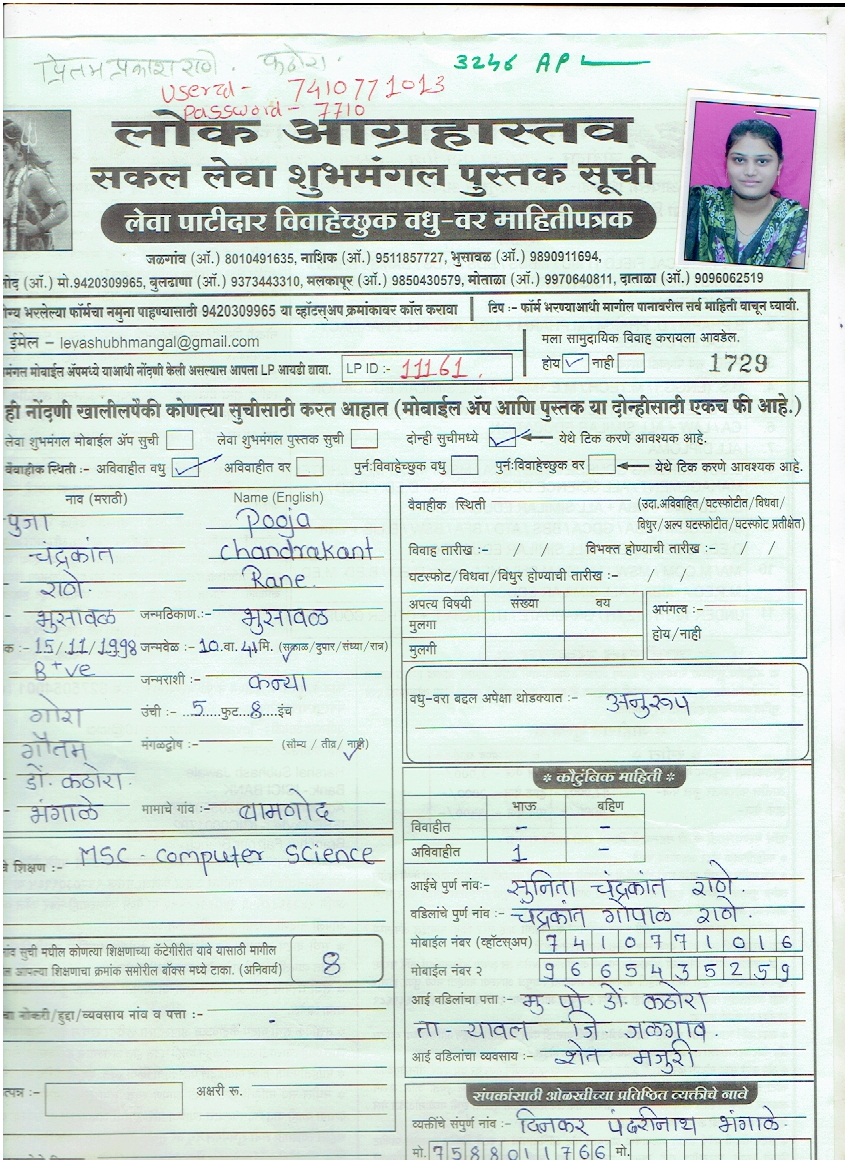 प्रितम प्रकाश राणे. कठोरा. 3246 APL
Userid- 7410771013
Password- 7710
लोक आग्रहास्तव
सकल लेवा शुभमंगल पुस्तक सूची
लेवा पाटीदार विवाहेच्छुक वधु-वर माहितीपत्रक
जळगांव (ऑ.) 8010491635, नाशिक (ऑ.) 9511857727, भुसावळ (ऑ.) 9890911694,
मोद (ऑ.) मो.9420309965, बुलढाणा (ऑ.) 9373443310, मलकापूर (ऑ.) 9850430579, मोताळा (ऑ.) 9970640811, दाताळा (ऑ.) 9096062519
ोग्य भरलेल्या फॉर्मचा नमुना पाहण्यासाठी 9420309965 या व्हॉटस्अप क्रमांकावर कॉल करावा | टिप :- फॉर्म भरण्याआधी मागील पानावरील सर्व माहिती वाचून घ्यावी.
ईमेल – levashubhmangal@gmail.com
मला सामुदायिक विवाह करायला आवडेल.
होय ✓ नाही 1729
मंगल मोबाईल ॲपमध्ये याआधी नोंदणी केली असल्यास आपला LP आयडी द्यावा. LP ID :- 11161.
ही नोंदणी खालीलपैकी कोणत्या सुचीसाठी करत आहात (मोबाईल ॲप आणि पुस्तक या दोन्हीसाठी एकच फी आहे.)
लेवा शुभमंगल मोबाईल ॲप सुची लेवा शुभमंगल पुस्तक सुची दोन्ही सुचीमध्ये ✓ येथे टिक करणे आवश्यक आहे.
वैवाहीक स्थिती :- अविवाहीत वधु ✓ अविवाहीत वर पुर्नःविवाहेच्छुक वधु पुर्नःविवाहेच्छुक वर येथे टिक करणे आवश्यक आहे.
नाव (मराठी) Name (English)
पुजा Pooja
चंद्रकांत Chandrakant
राणे. Rane.
भुसावळ जन्मठिकाण.:- भुसावळ
क :- 15/11/1998 जन्मवेळ :- 10.वा.41मि. (सकाळ/दुपार/संध्या/रात्र)
B+ve जन्मराशी :- कन्या
गोरा उंची :- 5 फुट 8 इंच
गौतम मंगळदोष :- (सौम्य / तीव्र/ नाही) ✓
डों. कठोरा.
भंगाळे मामाचे गांव :- बामणोद
चे शिक्षण :- MSC - Computer Science
ांव सुची मधील कोणत्या शिक्षणाच्या कॅटेगीरीत यावे यासाठी मागील
ल आपल्या शिक्षणाचा क्रमांक समोरील बॉक्स मध्ये टाका. (अनिवार्य) 8
चा नोकरी/हुद्दा/व्यवसाय नांव व पत्ता :- -
त्पन्न :- अक्षरी रू.
वैवाहीक स्थिती (उदा.अविवाहित/घटस्फोटीत/विधवा/
विधुर/अल्प घटस्फोटीत/घटस्फोट प्रतीक्षेत)
विवाह तारीख :- / / विभक्त होण्याची तारीख :- / /
घटस्फोट/विधवा/विधुर होण्याची तारीख :- / /
अपत्य विषयी संख्या वय अपंगत्व :-
मुलगा होय/नाही
मुलगी
वधु-वरा बद्दल अपेक्षा थोडक्यात :- अनुरूप
* कौटुंबिक माहिती *
भाऊ बहिण
विवाहीत - -
अविवाहीत 1 -
आईचे पुर्ण नांवः- सुनिता चंद्रकांत राणे.
वडिलांचे पुर्ण नांव :- चंद्रकांत गोपाळ राणे.
मोबाईल नंबर (व्हॉटस्अप) 7410771016
मोबाईल नंबर २ 9665435259
आई वडिलांचा पत्ता :- मु. पो. डों. कठोरा
ता- यावल जि- जळगाव.
आई वडिलांचा व्यवसाय :- शेत मजुरी
संपर्कासाठी ओळखीच्या प्रतिष्ठित व्यक्तीचे नावे
व्यक्तींचे संपुर्ण नांव :- दिनकर पंढरीनाथ भंगाळे.
मो. 7588011766 मो.